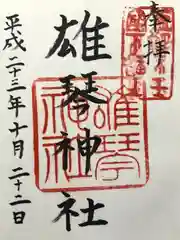 奉拝
雄琴神社
平成二十三年十月二十二日